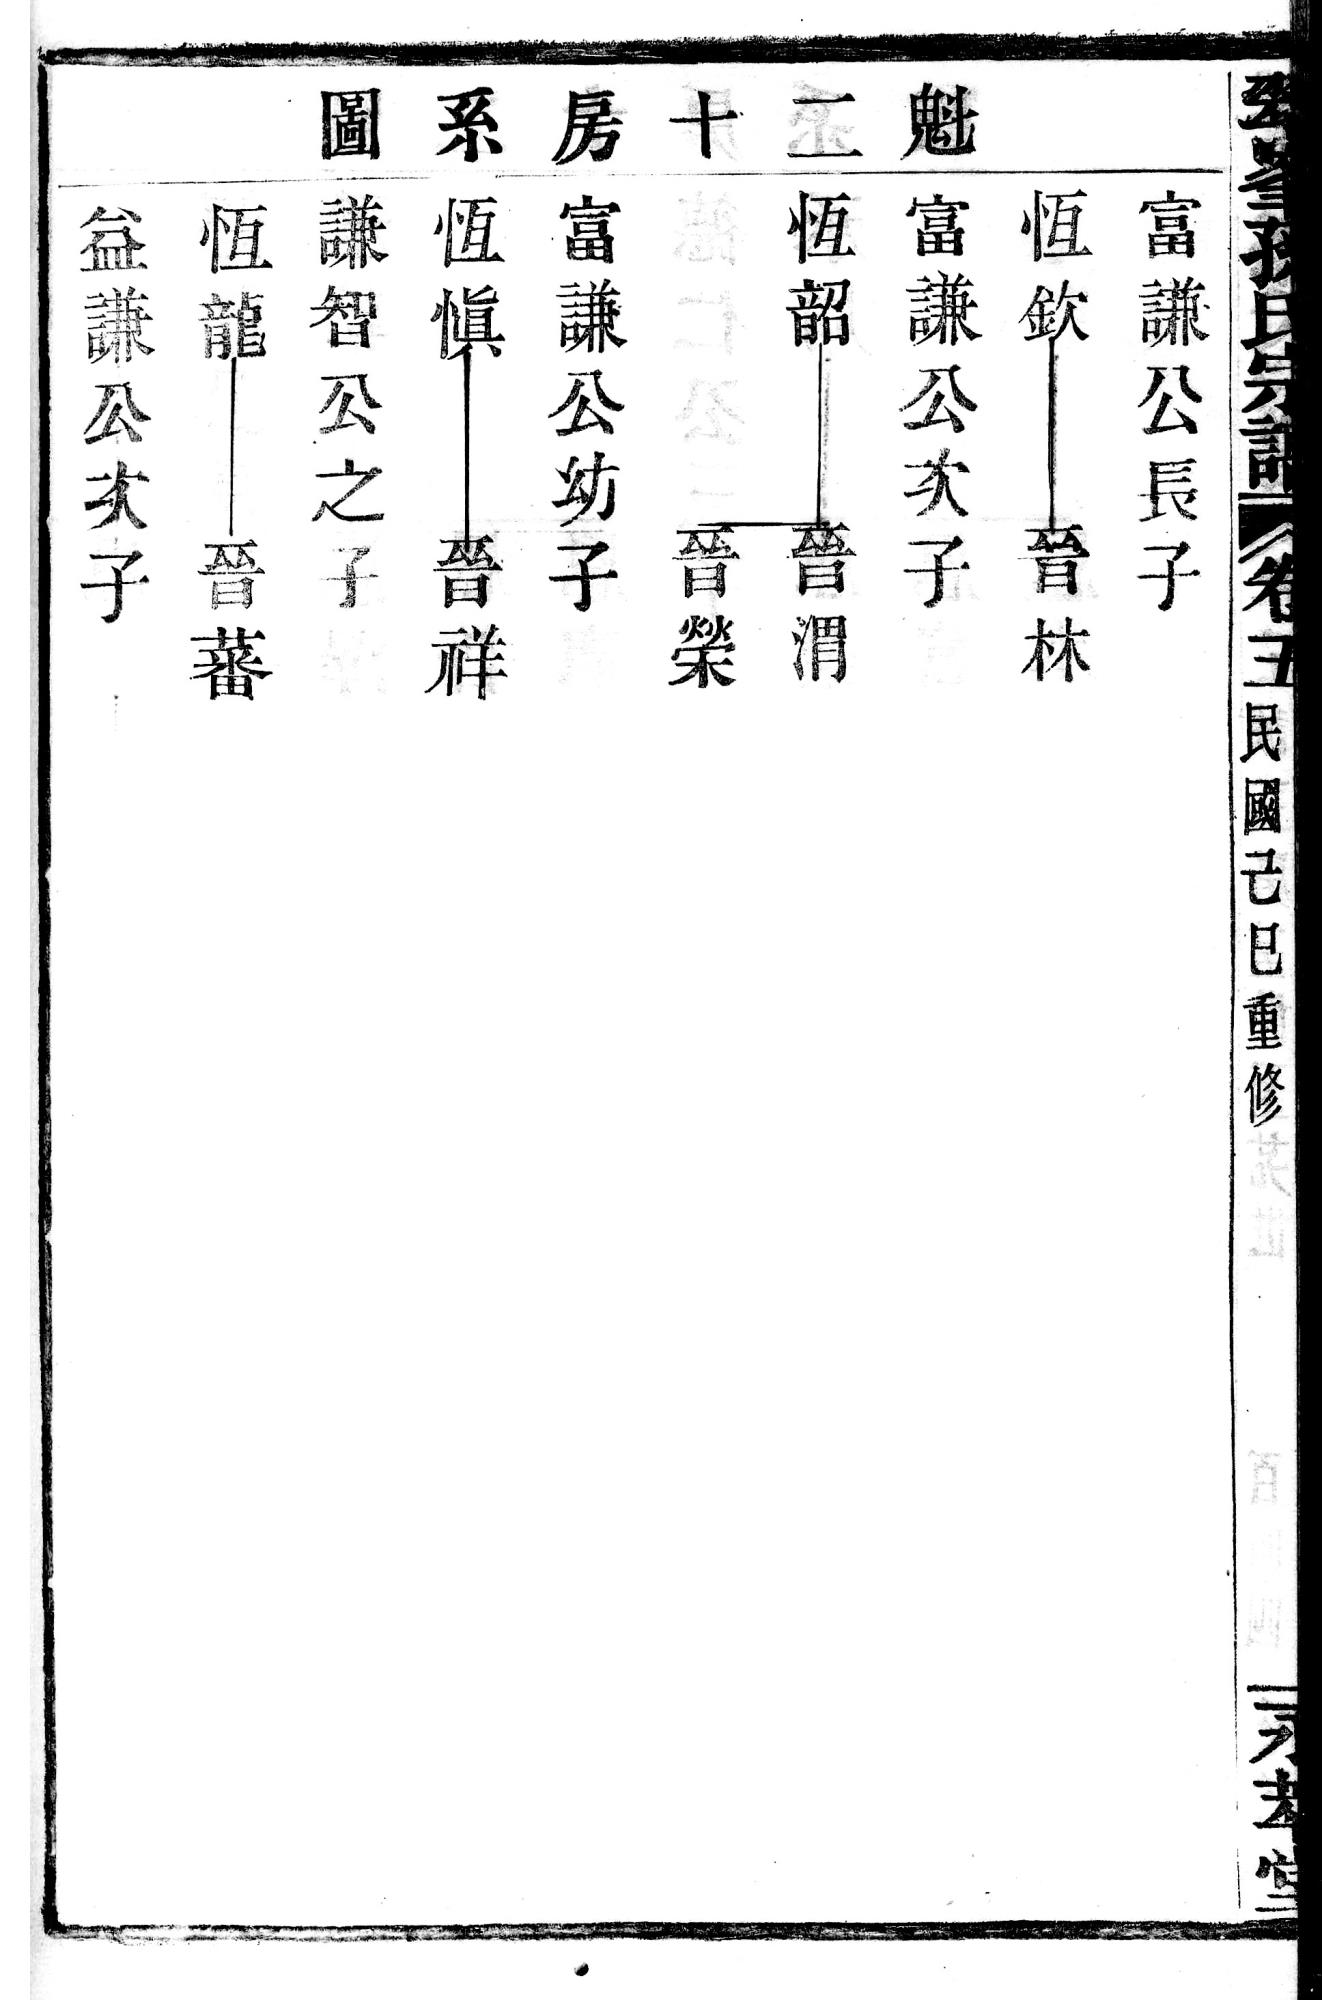 孫氏宗譜
卷五
民國己巳重修
堂
魁二十房系圖
富謙公長子
恆欽
晉林
富謙公次子
恆韶
晉渭
晉榮
富謙公幼子
恆愼
晉祥
謙智公之子
恆龍
晉蕃
益謙公次子